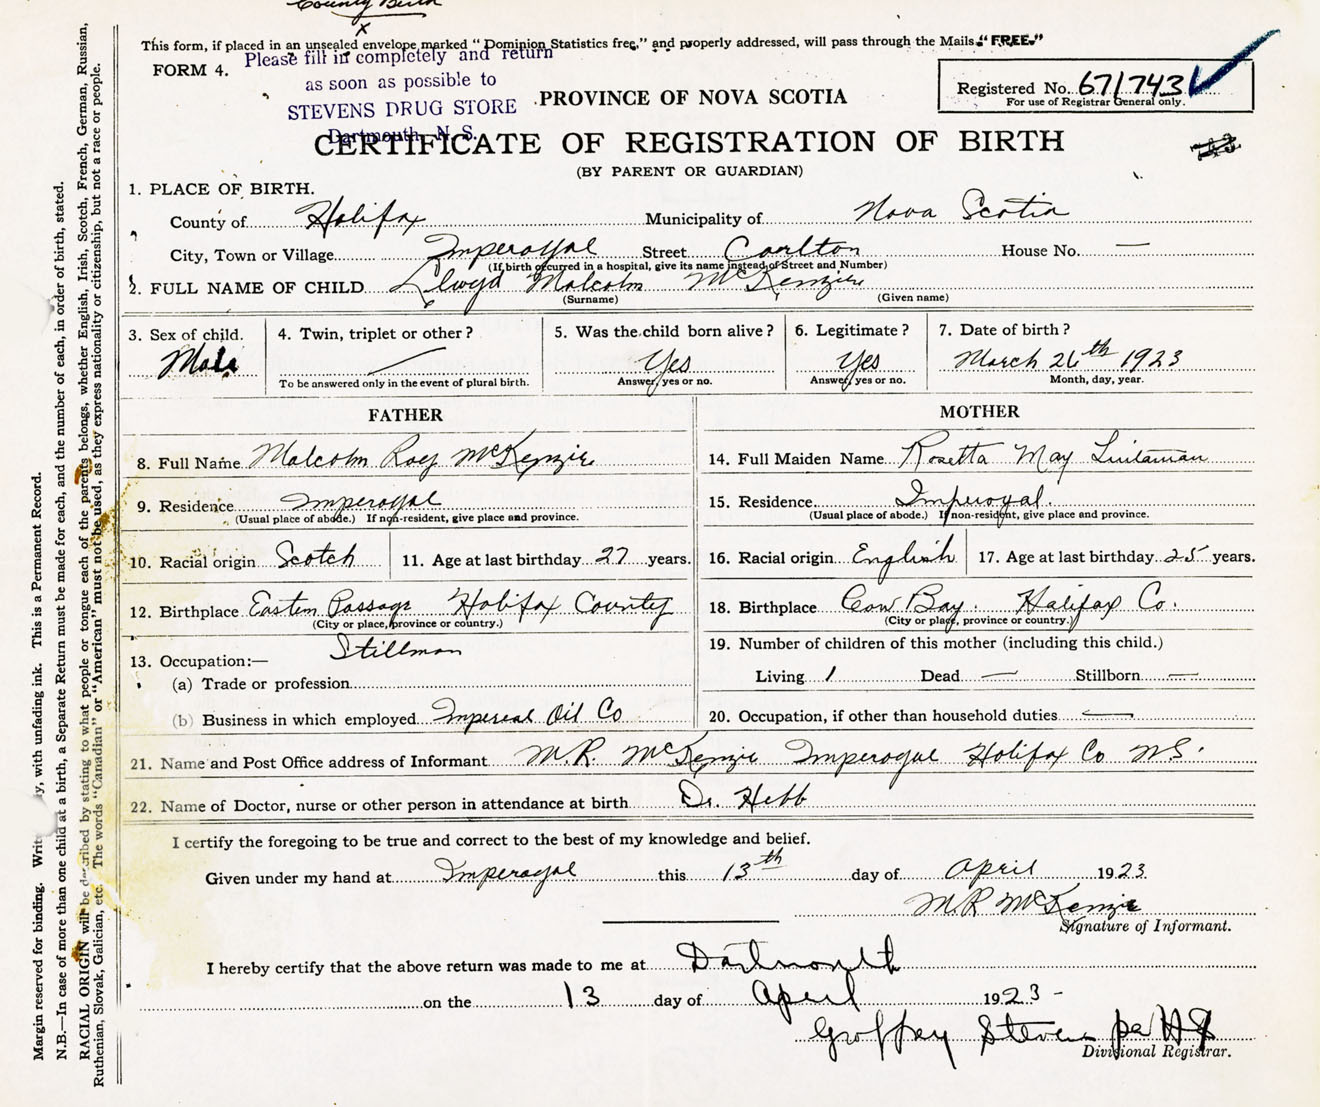 County Birth
x
This form, if placed in an unsealed envelope marked "Dominion Statistics free," and properly addressed, will pass through the Mails "FREE."
FORM 4.
Please fill in completely and return
as soon as possible to
STEVENS DRUG STORE
Dartmouth, N. S.
PROVINCE OF NOVA SCOTIA
Registered No. 671743
For use of Registrar General only.
CERTIFICATE OF REGISTRATION OF BIRTH
(BY PARENT OR GUARDIAN)
1. PLACE OF BIRTH.
County of Halifax Municipality of Nova Scotia
City, Town or Village Imperoyal Street Carlton House No. —
(If birth occurred in a hospital, give its name instead of Street and Number)
2. FULL NAME OF CHILD Llwyd Malcolm McKenzie
(Surname) (Given name)
3. Sex of child. Male
4. Twin, triplet or other? —
To be answered only in the event of plural birth.
5. Was the child born alive? Yes
Answer, yes or no.
6. Legitimate? Yes
Answer, yes or no.
7. Date of birth? March 26th 1923
Month, day, year.
FATHER
8. Full Name Malcolm Roy McKenzie
9. Residence Imperoyal
(Usual place of abode.) If non-resident, give place and province.
10. Racial origin Scotch 11. Age at last birthday 27 years.
12. Birthplace Eastern Passage Halifax County
(City or place, province or country.)
13. Occupation:— Stillman
(a) Trade or profession
(b) Business in which employed Imperial Oil Co
MOTHER
14. Full Maiden Name Rosetta May
15. Residence Imperoyal.
(Usual place of abode.) If non-resident, give place and province.
16. Racial origin English 17. Age at last birthday 25 years.
18. Birthplace Cow Bay. Halifax Co.
(City or place, province or country.)
19. Number of children of this mother (including this child.)
Living 1 Dead — Stillborn —
20. Occupation, if other than household duties —
21. Name and Post Office address of Informant M.R. McKenzie Imperoyal Halifax Co N.S.
22. Name of Doctor, nurse or other person in attendance at birth Dr. Hebb
I certify the foregoing to be true and correct to the best of my knowledge and belief.
Given under my hand at Imperoyal this 13th day of April 1923
M.R McKenzie
Signature of Informant.
I hereby certify that the above return was made to me at Dartmouth
on the 13 day of April 1923 -
Groffrey Stevens per H S
Divisional Registrar.
Margin reserved for binding. Write y, with unfading ink. This is a Permanent Record.
N.B.—In case of more than one child at a birth, a Separate Return must be made for each, and the number of each, in order of birth, stated.
RACIAL ORIGIN will be described by stating to what people or tongue each of the parents belongs, whether English, Irish, Scotch, French, German, Russian,
Ruthenian, Slovak, Galician, etc. The words "Canadian" or "American" must not be used, as they express nationality or citizenship, but not a race or people.